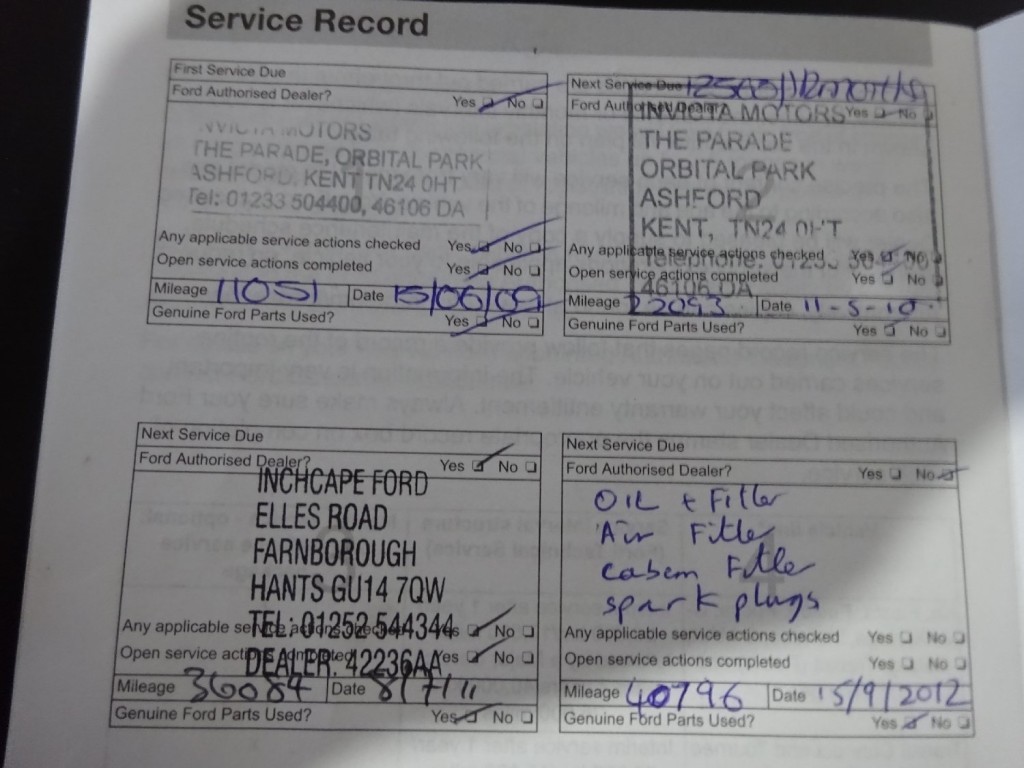 Service Record
First Service Due
Ford Authorised Dealer? Yes No
INVICTA MOTORS
THE PARADE, ORBITAL PARK
ASHFORD, KENT TN24 0HT
Tel: 01233 504400, 46106 DA
Any applicable service actions checked Yes No
Open service actions completed Yes No
Mileage 11051 Date 15/06/09
Genuine Ford Parts Used? Yes No
Next Service Due 12500/12months
Ford Authorised Dealer? Yes No
INVICTA MOTORS
THE PARADE
ORBITAL PARK
ASHFORD
KENT, TN24 0HT
Any applicable service actions checked Yes No
Telephone: 01233
Open service actions completed Yes No
46106 DA
Mileage 22093 Date 11-5-10
Genuine Ford Parts Used? Yes No
Next Service Due
Ford Authorised Dealer? Yes No
INCHCAPE FORD
ELLES ROAD
FARNBOROUGH
HANTS GU14 7QW
TEL: 01252 544344
Any applicable service actions checked Yes No
DEALER: 42236AA
Open service actions completed Yes No
Mileage 36084 Date 8/7/11
Genuine Ford Parts Used? Yes No
Next Service Due
Ford Authorised Dealer? Yes No
OIL + Fitler
Air Fitler
cabem Fitler
spark plugs
4
Any applicable service actions checked Yes No
Open service actions completed Yes No
Mileage 40796 Date 15/9/2012
Genuine Ford Parts Used? Yes No